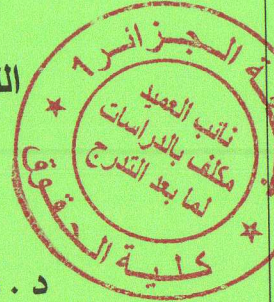 جامعة الجزائر 1
نائب العميد
مكلف بالدراسات
لما بعد التدرج
كلية الحقوق
د.